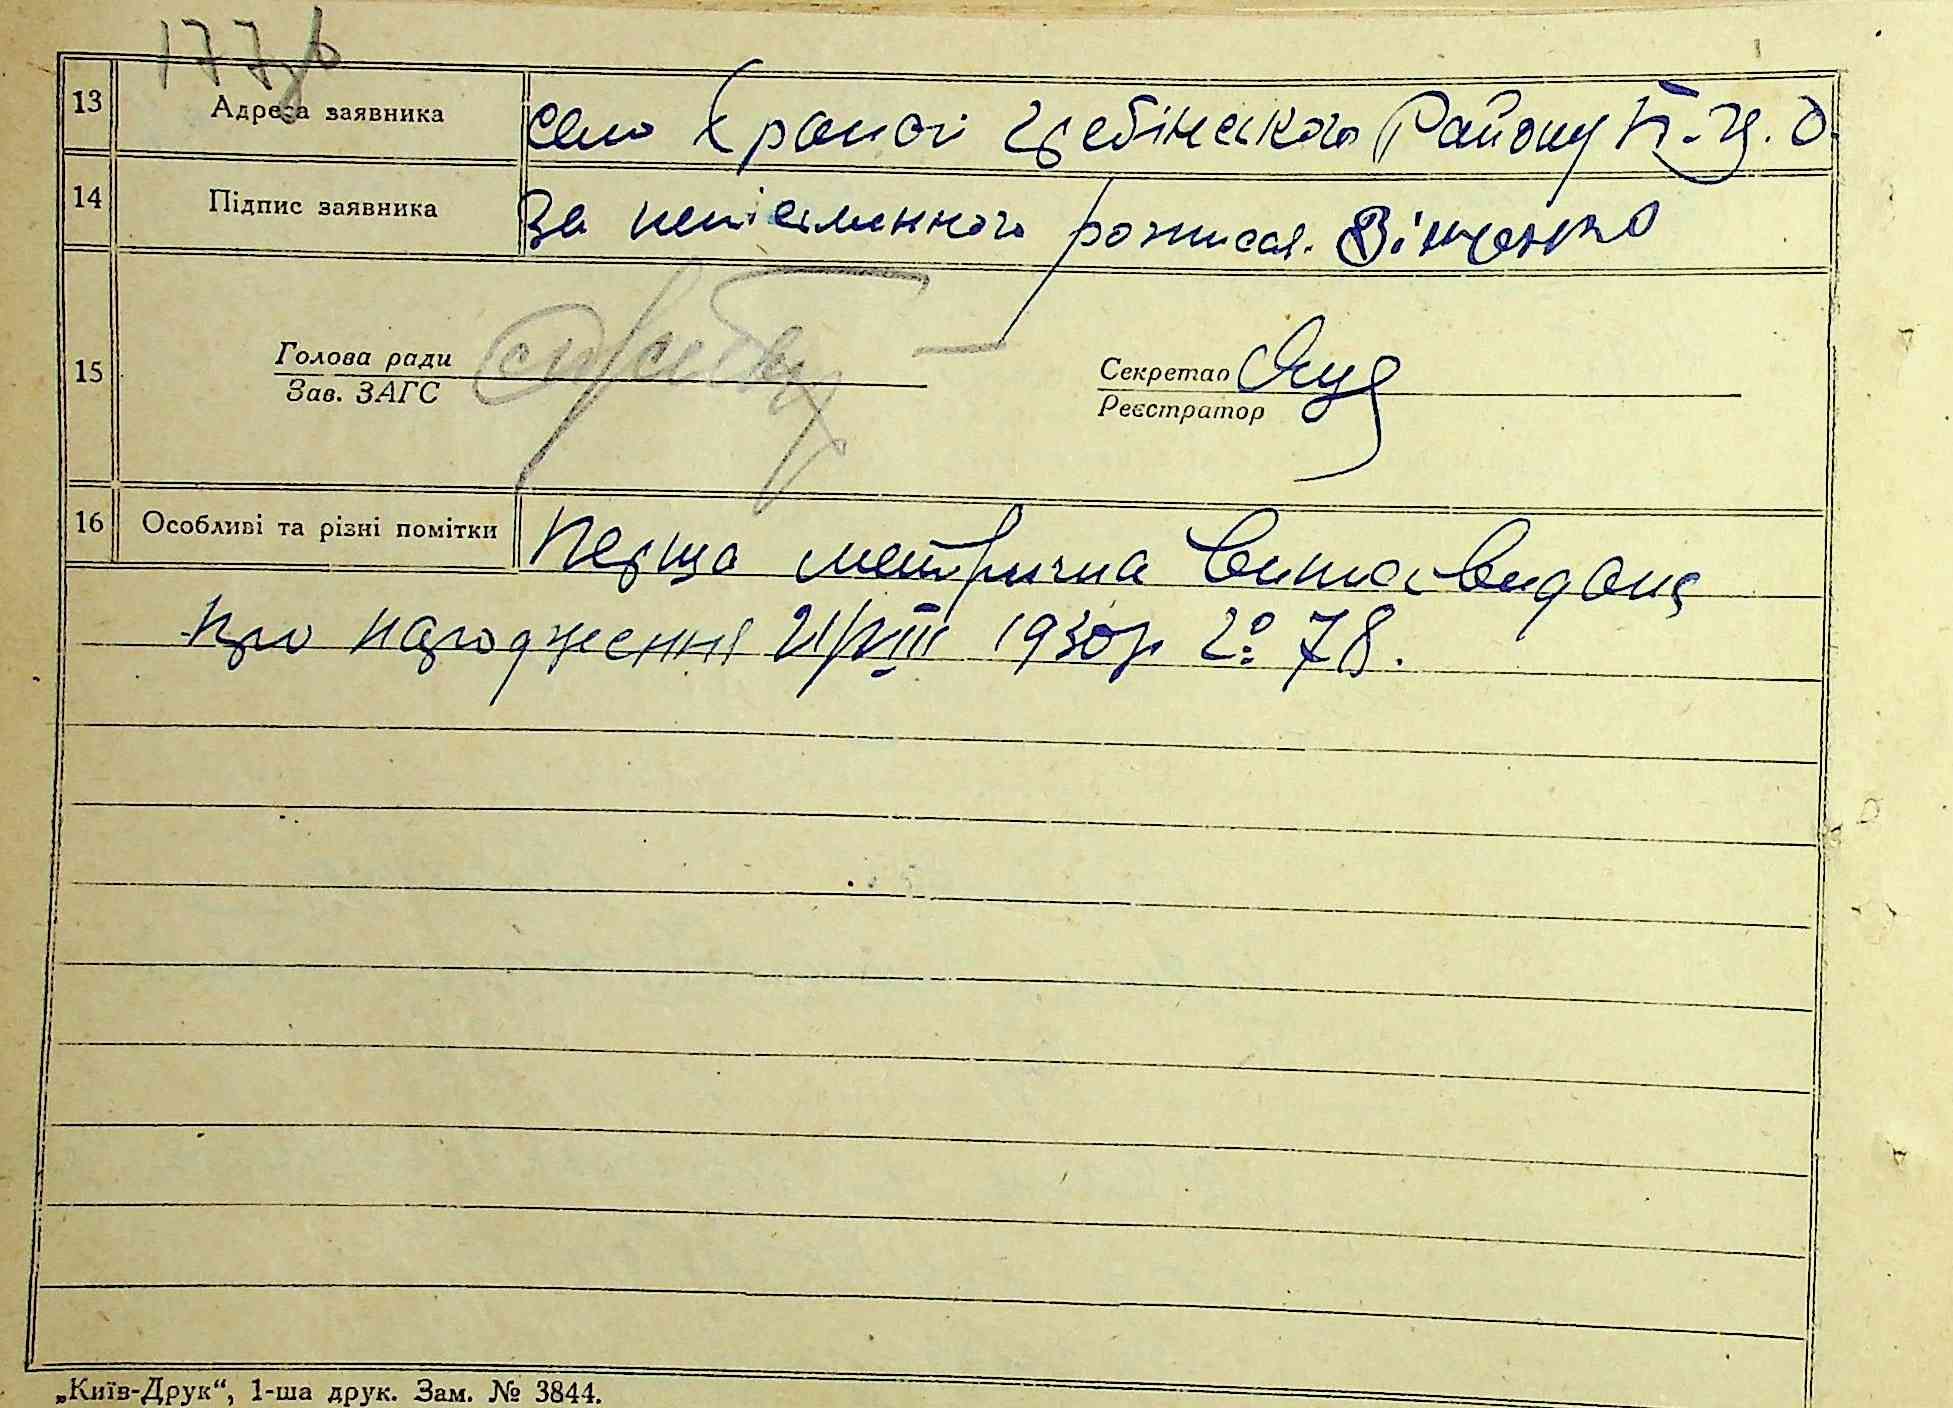 177
13 Адреса заявника село Хрансі Цребінського Району К.Ц.О.
14 Підпис заявника За неписьменного розписал. Вінченко
15 Голова ради Секретар
Зав. ЗАГС Реєстратор
16 Особливі та різні помітки Перша метрична випис видана
про народження 21/VIII 1930 р № 78.
„Київ-Друк“, 1-ша друк. Зам. № 3844.